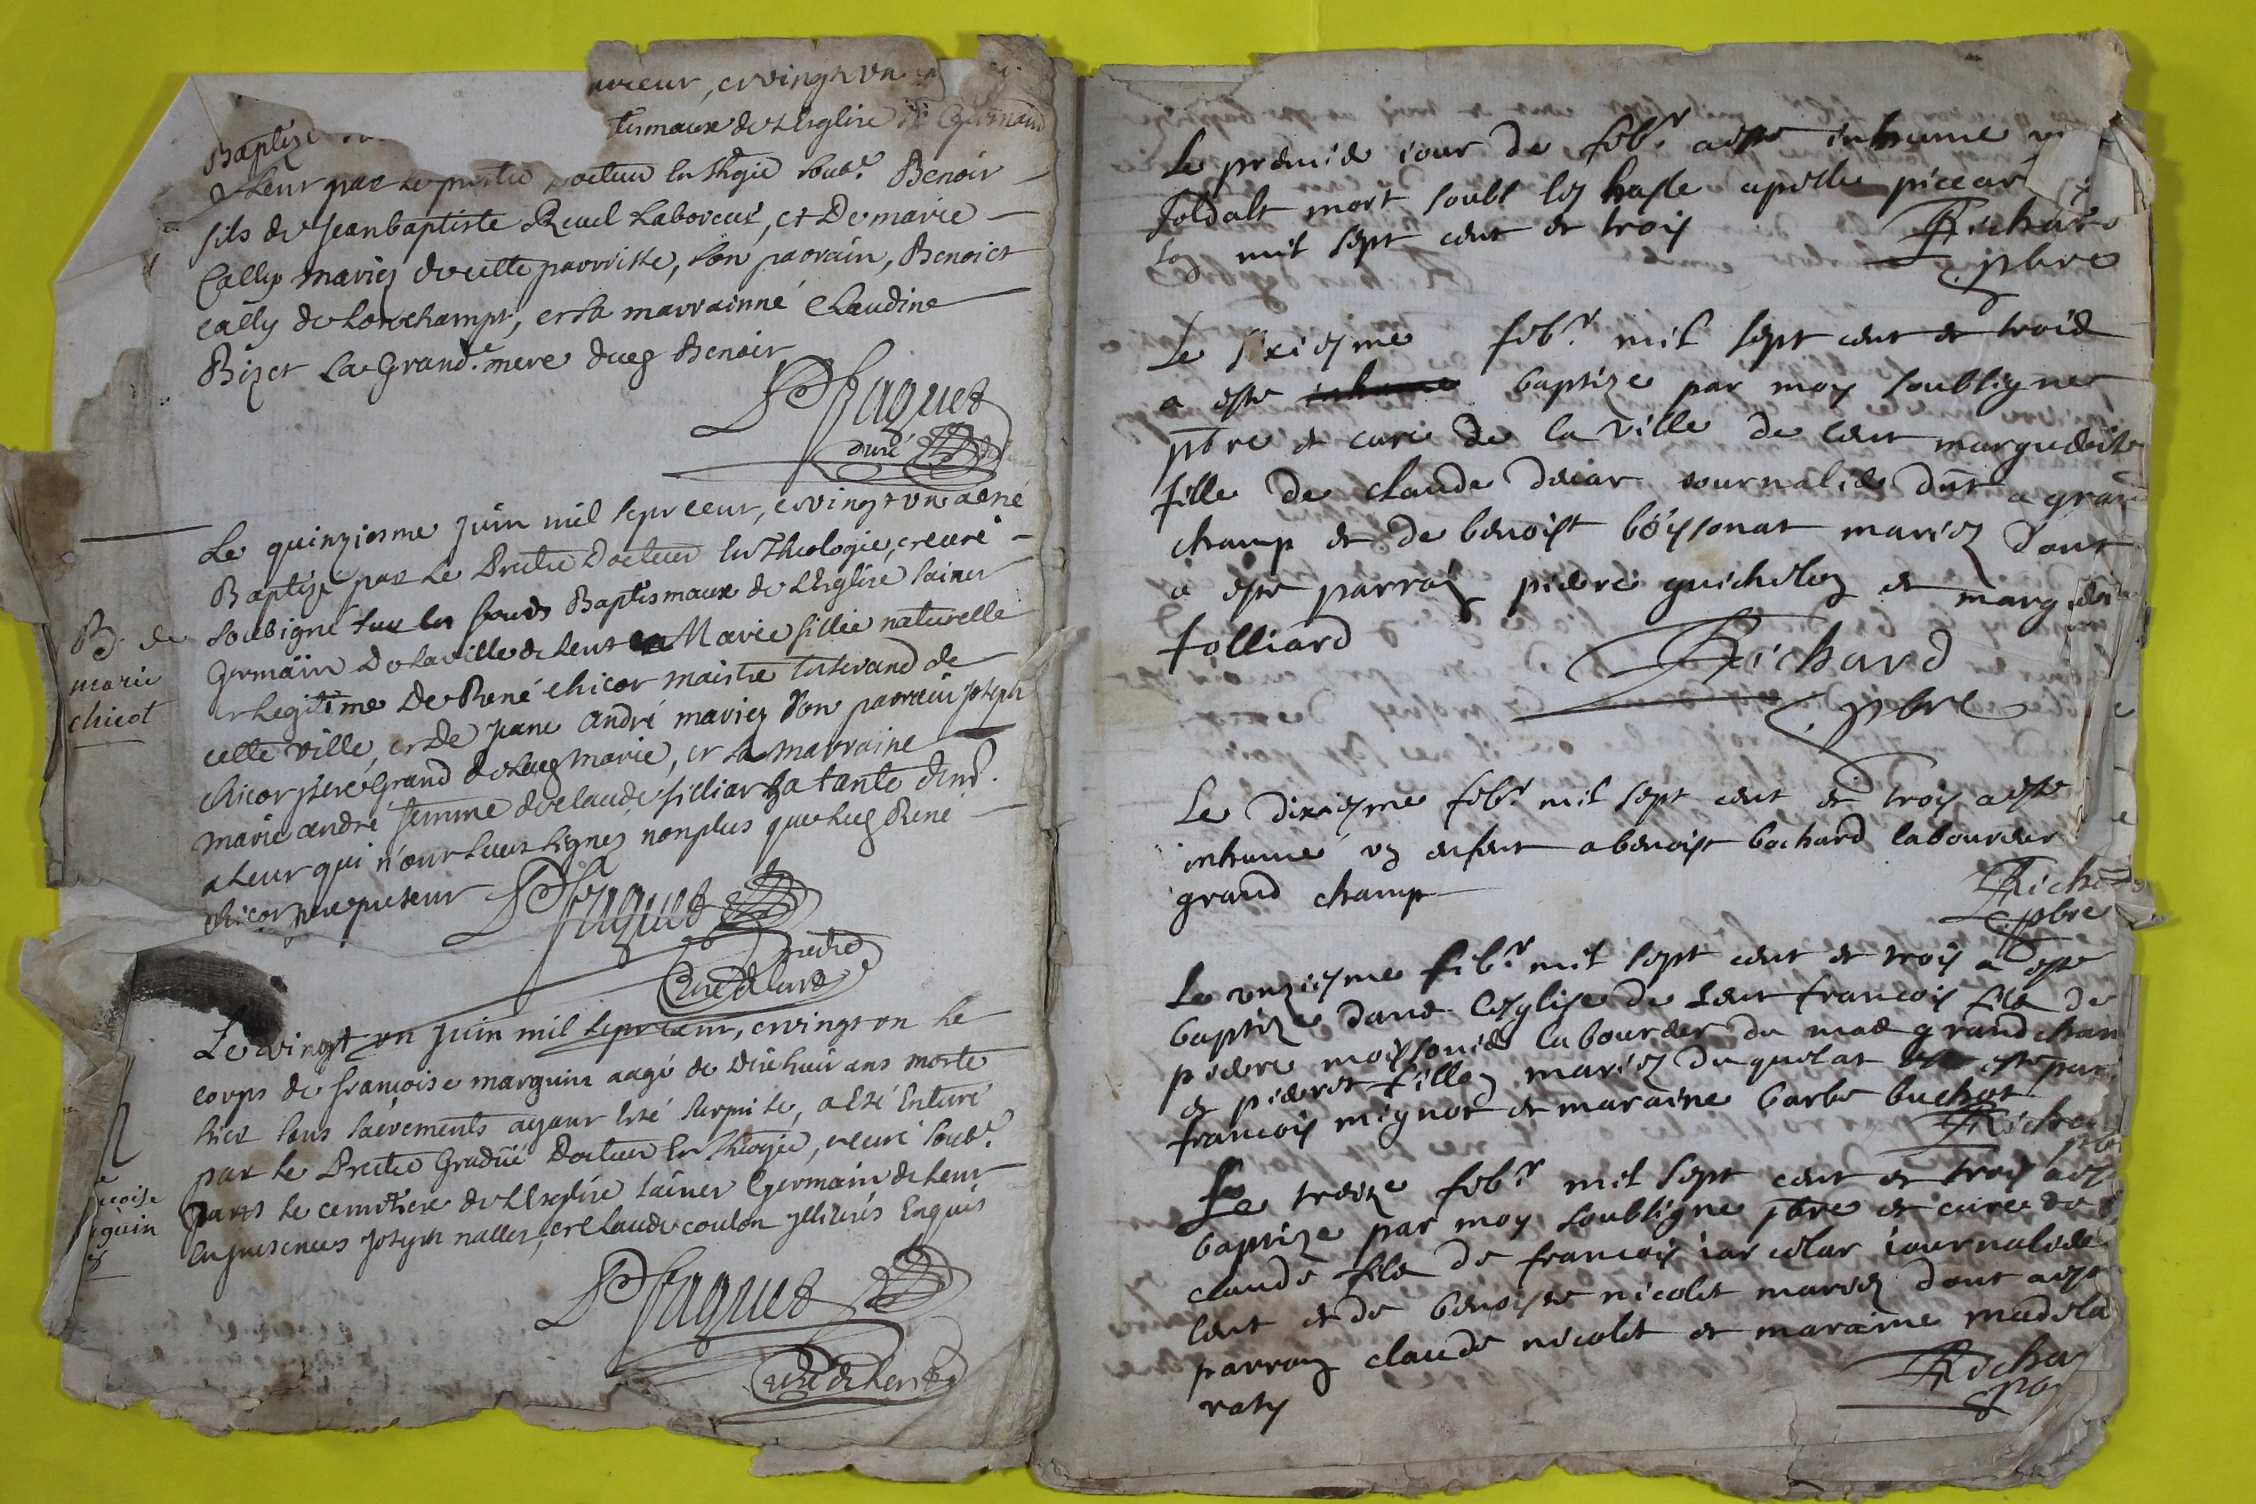 Baptizé
tismaux de L'Eglise
a Lent par le prestre Docteur en Thgie soub.é Benoit
fils de Jean baptiste Ruel Laboreur, et De marie
Cally mariez de cette parroisse, son parrain, Benoict
cally de Lonchampt, et sa marrainne Claudine
Bizet La Grand. mere dueg Benoit
P Jaquet
curé
Le quinziesme juin mil sept cent, et vingt un a eté
Baptizé par Le Pretre Docteur en Theologie, et curé
soubigné sur les fonds Baptismaux de L'Eglise sainct
Germain De la ville de Lent Marie fillie naturelle
et Legitime De René chicot maistre de
cette ville, et De Jeane andré mariez son parrain Joseph
chicot pere Grand de Marie, et La marraine
Marie andré femme de claude filliar sa tante
a Lent qui n'ont sceut signez non plus que René
chicot pere present
P Jaquet
Pretre
Curé de Lent
B. de
marie
chicot
Le vingt un juin mil sept cent, et vingt un Le
corps de françoise marguin aagé de dix huit ans morte
hier sans sacrements ayant esté surprise, a esté Enterré
par le Pretre Gradué Docteur en Theogie, et curé soub.é
dans Le cemitiere de L'Esglise sainct Germain de Lent
En presences Joseph nallet, et claude coulon illiterés Enquis
P Jaquet
curé de Lent
Le premié iour de feb.r a este inhume
soldalt mort soubt les hasle apelle picear
mil sept cent et trois
Richard
pbre
Le sixiesme feb.r mil sept cent et trois
a este baptize par moy soubsigne
pbre et curé de la ville de lent marguerite
fille de claude decar iournalier dnt a grand
champ et de benoist boissonat mariez dont
a este parrain pierre guicheles et margueri
tolliard
Richard
pbre
Le dixiesme feb.r mil sept cent et trois a este
inhumé un enfent a benoist bochard laboureur
grand champ
Richard
pbre
Le unziesme feb.r mil sept cent et trois a este
baptize dans lesglise de Lent francois fils de
pierre moissonier labourer du mas grand cham
et pierret fillez mariez du quelat este par
francois mignot et maraine barbe buchot
Richard
pbre
Le treize feb.r mil sept cent et trois a este
baptize par moy soubsigne pbre et cure de
claude fils de francois iarcelar iournalier
lent et de benoiste nicolet mariez dont a este
parrain claude nicolet et maraine madela
raty
Richa